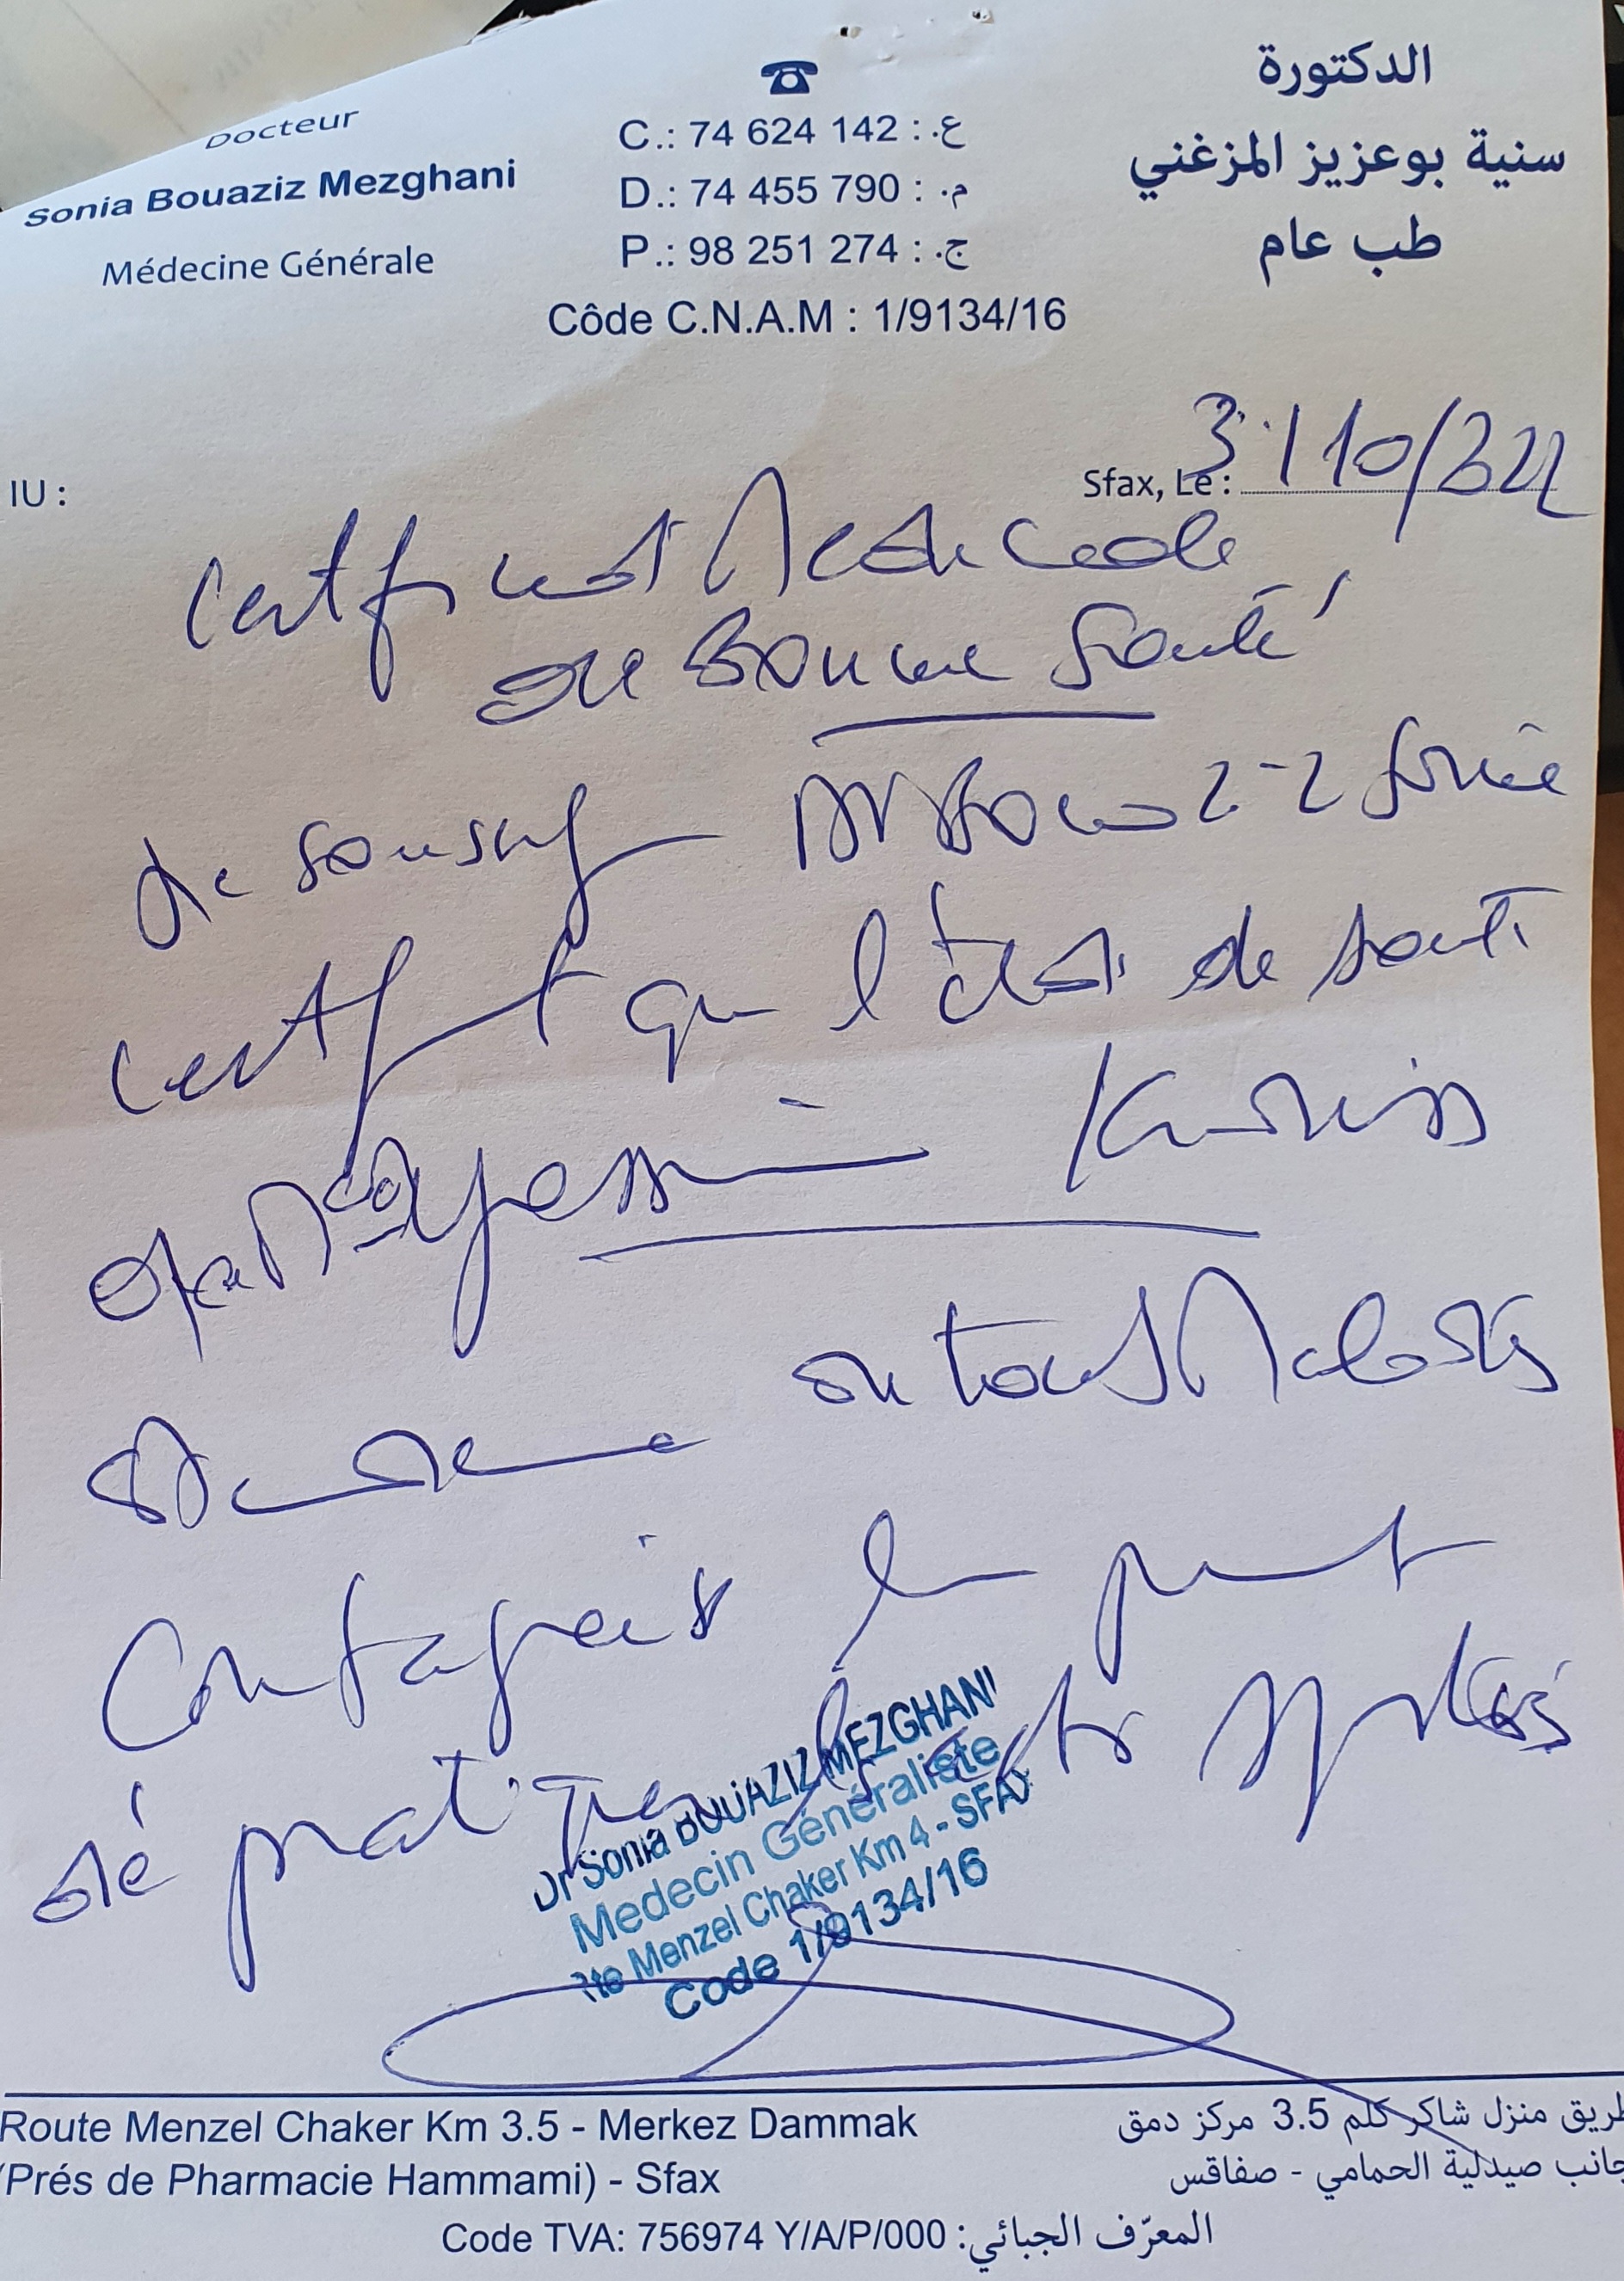 Docteur
Sonia Bouaziz Mezghani
Médecine Générale
C.: 74 624 142 : ع.
D.: 74 455 790 : م.
P.: 98 251 274 : ج.
Côde C.N.A.M : 1/9134/16
الدكتورة
سنية بوعزيز المزغني
طب عام
IU :
Sfax, Le : 3/10/
Certificat Medicale
de Bonne Santé
Je soussig Dr Bouaziz Sonia
certifit que l'état de santé
de Yassin
on tout Maladies
Contagieux
de pratiquer sports
Dr Sonia BOUAZIZ MEZGHANI
Medecin Généraliste
Rte Menzel Chaker Km 4 - SFAX
Code 1/9134/16
Route Menzel Chaker Km 3.5 - Merkez Dammak
(Prés de Pharmacie Hammami) - Sfax
طريق منزل شاكر كلم 3.5 مركز دمق
جانب صيدلية الحمامي - صفاقس
Code TVA: 756974 Y/A/P/000 :المعرّف الجبائي